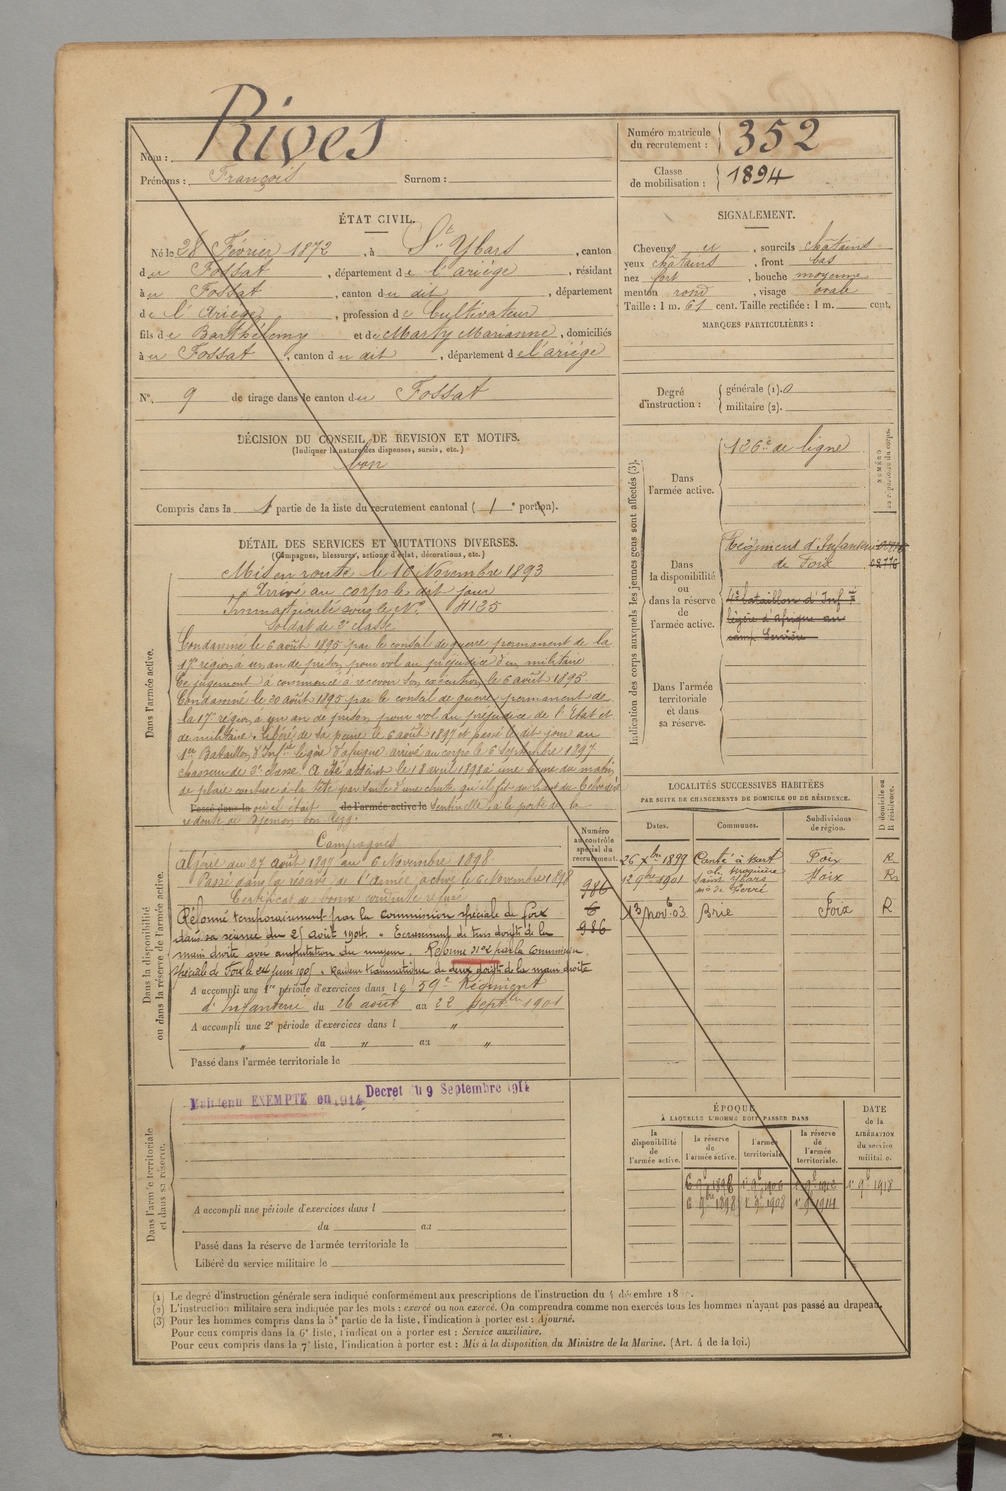 Nom : Rives
Prénoms : François Surnom :
Numéro matricule du recrutement : 352
Classe de mobilisation : 1894
ÉTAT CIVIL.
Né le 28 Février 1872, à St Ybars, canton
du Fossat, département de l'ariège, résidant
à u Fossat, canton du dit, département
de l'Ariège, profession de Cultivateur
fils de Barthélemy et de Marty Marianne, domiciliés
à u Fossat, canton du dit, département de l'ariége
N° 9 de tirage dans le canton du Fossat
DÉCISION DU CONSEIL DE REVISION ET MOTIFS.
(Indiquer la nature des dispenses, sursis, etc.)
bon
Compris dans la 1 partie de la liste du recrutement cantonal ( 1 e portion).
SIGNALEMENT.
Cheveux et, sourcils chatains
yeux chatains, front bas
nez fort, bouche moyenne
menton rond, visage ovale
Taille : 1 m. 61 cent. Taille rectifiée : 1 m. cent.
MARQUES PARTICULIÈRES :
Degré d'instruction : générale (1). 0
militaire (2).
DÉTAIL DES SERVICES ET MUTATIONS DIVERSES.
(Campagnes, blessures, actions d'éclat, décorations, etc.)
Dans l'armée active.
Mis en route le 16 Novembre 1893
Arrivé au corps le dit jour
Immatriculé sous le N° 4125
Soldat de 2e classe
Condamné le 6 août 1895 par le conseil de guerre permanent de la
17e région à un an de prison pour vol au préjudice d'un militaire
Ce jugement a commencé à recevoir son exécution le 6 août 1895.
Condamné le 20 août 1895 par le conseil de guerre permanent de
la 17e région à un an de prison pour vol au préjudice de l'Etat et
de militaire. Libéré de sa peine le 6 août 1897 et passé le dit jour au
1er Bataillon d'Inf. légère d'afrique arrivé au corps le 6 Septembre 1897
chasseur de 2e classe. A été atteint le 18 avril 1898 à une heure du matin,
de plaie contuse à la tête par suite d'une chute qu'il fit du haut du
Passé dans la où il était de l'armée active le Sentinelle à la porte de la
redoute de
Indication des corps auxquels les jeunes gens sont affectés (3).
NUMÉRO au répertoire du corps.
Dans l'armée active.
126e de ligne
Dans la disponibilité ou dans la réserve de l'armée active.
Régiment d'Infanterie
de Foix
4e bataillon d'Inf ie
légère d'Afrique au
camp Servière
Dans l'armée territoriale et dans sa réserve.
LOCALITÉS SUCCESSIVES HABITÉES
PAR SUITE DE CHANGEMENTS DE DOMICILE OU DE RÉSIDENCE.
Dates. Communes. Subdivisions de région. D domicile ou R résidence.
26 Xbre 1899 Canté Foix R
12 9bre 1901 Saint Ybars Foix R
13 Nov 03 Brie Foix R
Dans la disponibilité ou dans la réserve de l'armée active.
Numéro au contrôle spécial du recrutement.
986
6
986
Campagnes
Algérie du 27 août 1897 au 6 Novembre 1898
Passé dans la réserve de l'Armée active le 6 Novembre 1898
Certificat de bonne conduite refusé
Réformé temporairement par la commission spéciale de Foix
dans sa séance du 25 août 1904. Ecrasement de trois doigts de la
main droite avec amputation du moyen. Réformé N°2 par la commission
spéciale de Foix le 24 juin 1905. Raideur traumatique de deux doigts de la main droite
A accompli une 1re période d'exercices dans le 59e Régiment
d'Infanterie du 26 août au 22 Septbre 1901
A accompli une 2e période d'exercices dans l "
" du " au "
Passé dans l'armée territoriale le
Dans l'armée territoriale et dans sa réserve.
Maintenu EXEMPTE en 1914 Decret du 9 Septembre 1914
A accompli une période d'exercices dans l
du au
Passé dans la réserve de l'armée territoriale le
Libéré du service militaire le
ÉPOQUE
À LAQUELLE L'HOMME DOIT PASSER DANS
la disponibilité de l'armée active. la réserve de l'armée active. l'armée territoriale. la réserve de l'armée territoriale.
DATE de la LIBÉRATION du service militaire.
6 9bre 1898 1er 9e 1906 1er 9e 1912 1er 9e 1918
6 9bre 1898 1er 9e 1908 1er 9e 1914
(1) Le degré d'instruction générale sera indiqué conformément aux prescriptions de l'instruction du 4 décembre 18
(2) L'instruction militaire sera indiquée par les mots : exercé ou non exercé. On comprendra comme non exercés tous les hommes n'ayant pas passé au drapeau.
(3) Pour les hommes compris dans la 5e partie de la liste, l'indication à porter est : Ajourné.
Pour ceux compris dans la 6e liste, l'indication à porter est : Service auxiliaire.
Pour ceux compris dans la 7e liste, l'indication à porter est : Mis à la disposition du Ministre de la Marine. (Art. 4 de la loi.)